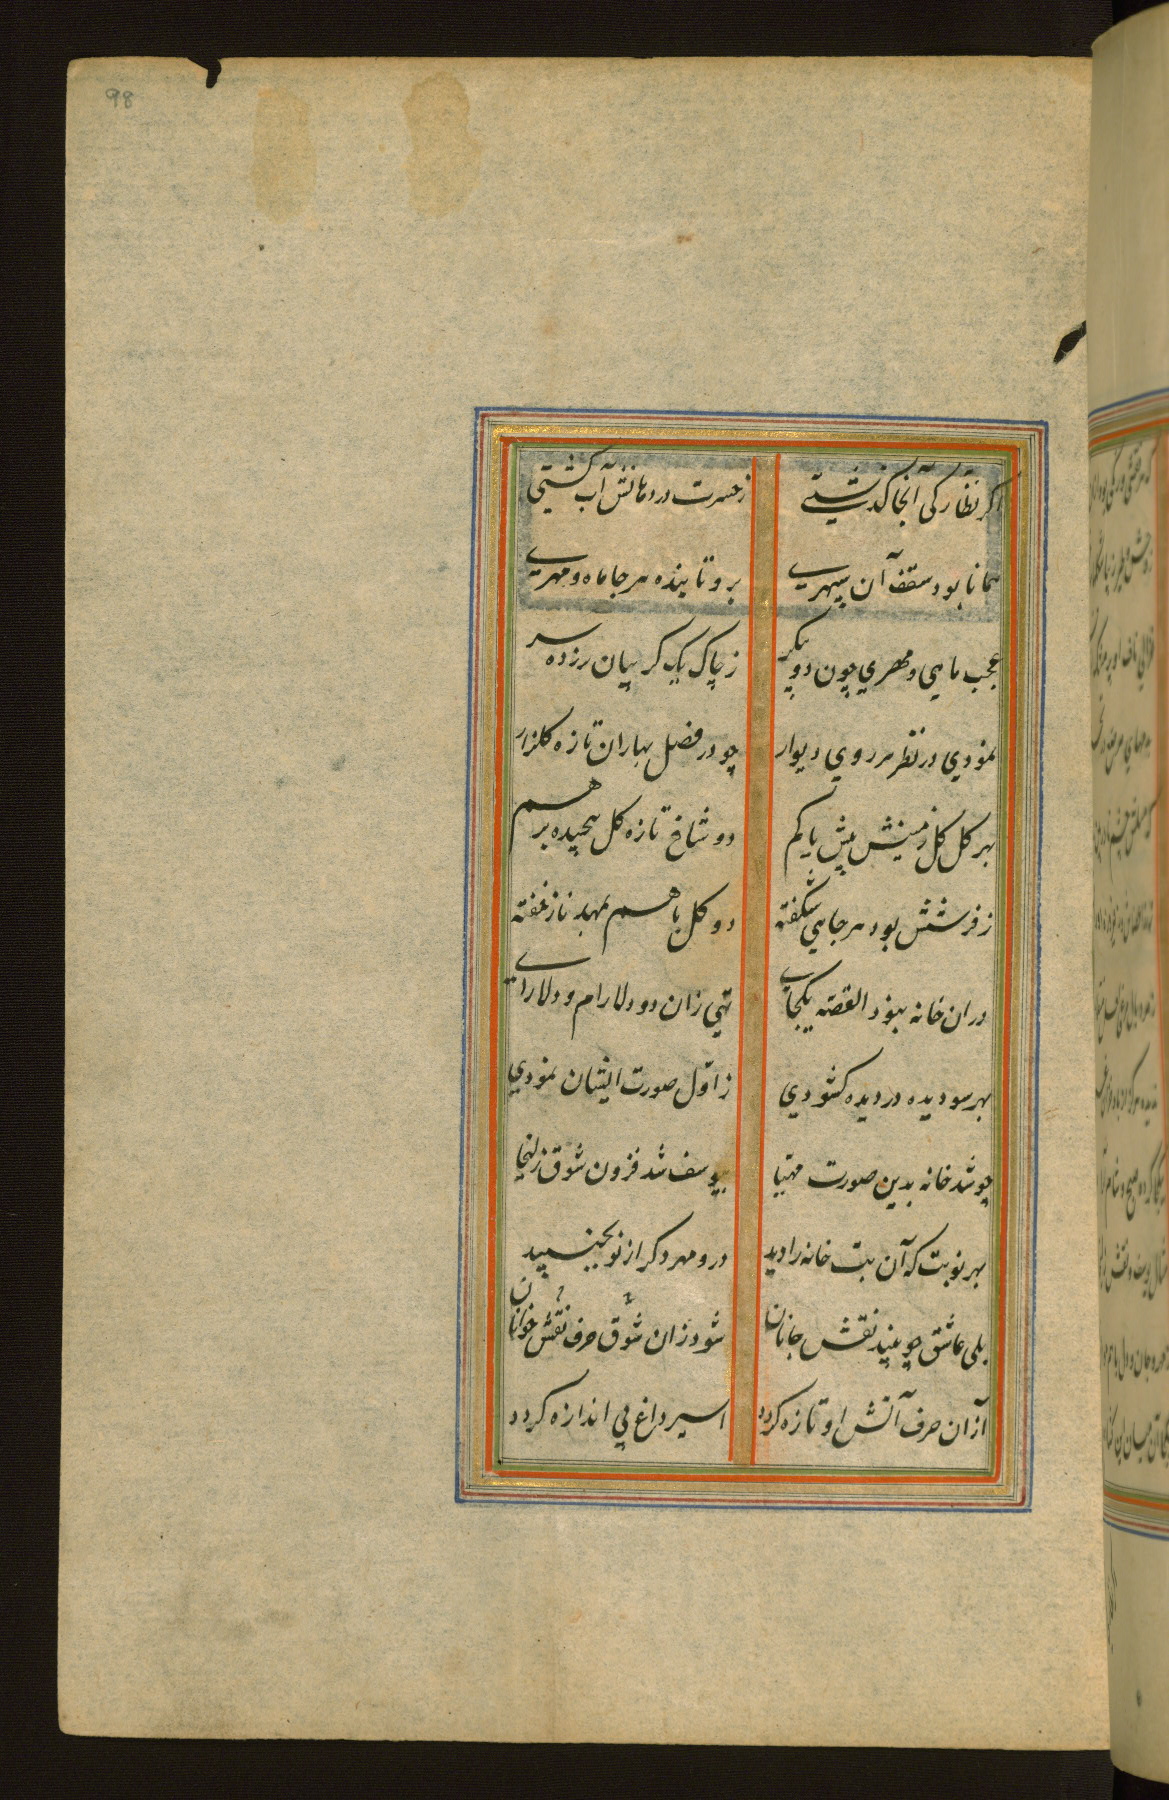 98
اکر نظارکی آنجا کذشتی ز حسرت در دهانش آب کشتی
همانا بود سقف آن سپهری برو تابنده هر جا ماه و مهری
عجب ماهی و مهری چون دو پیکر ز چاک یک کریبان برزده سر
نمودی در نظر هر روی دیوار چو در فصل بهاران تازه کلزار
بهر کل کل زمینش بیش یا کم دو شاخ تازه کل پیچیده بر هم
ز فرشش بود هر جایی شکفته دو کل با هم بمهد ناز خفته
در ان خانه نبود القصه یکجای تهی زان دو دلارام و دلارای
بهر سو دیده در دیده کشودی ز اوّل صورت ایشان نمودی
چو شد خانه بدین صورت مهیّا بیوسف شد فزون شوق زلیخا
بهر نوبت که آن بت خانه را دید درو مهر دکر از نو بجنبید
بلی عاشق چو بیند نقش جانان شود زان شوق حرف نقش خوانان
از ان حرف آتش او تازه کردد اسیر داغ بی اندازه کردد